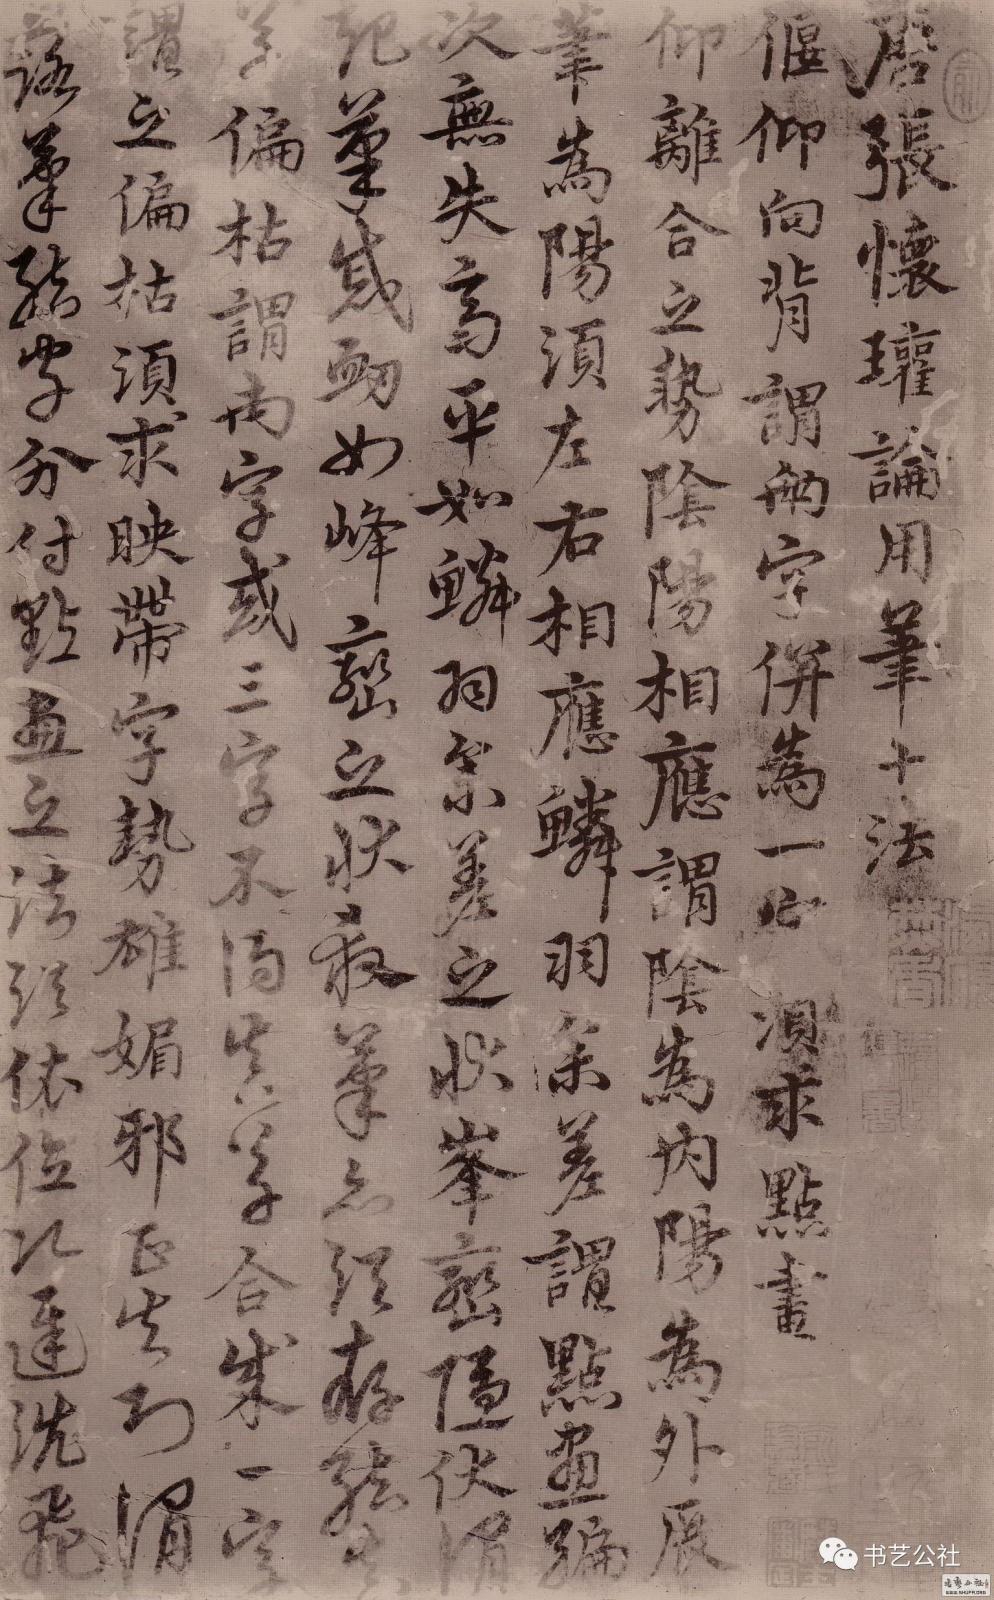 唐張懷瓘論用筆十法
偃仰向背謂兩字併為一字須求點畫
仰離合之勢陰陽相應謂陰為內陽為外展
筆為陽須左右相應鱗羽參差謂點畫編
次無失高平如鱗羽參差之狀峯巒隱伏謂
起筆蹙衄如峰巒之狀殺筆亦須存結真
草偏枯謂兩字或三字不得真草合成一字
謂之偏枯須求映帶字勢雄媚邪正失則謂
落筆結字分付點畫之法須依位次遲澀飛
书艺公社